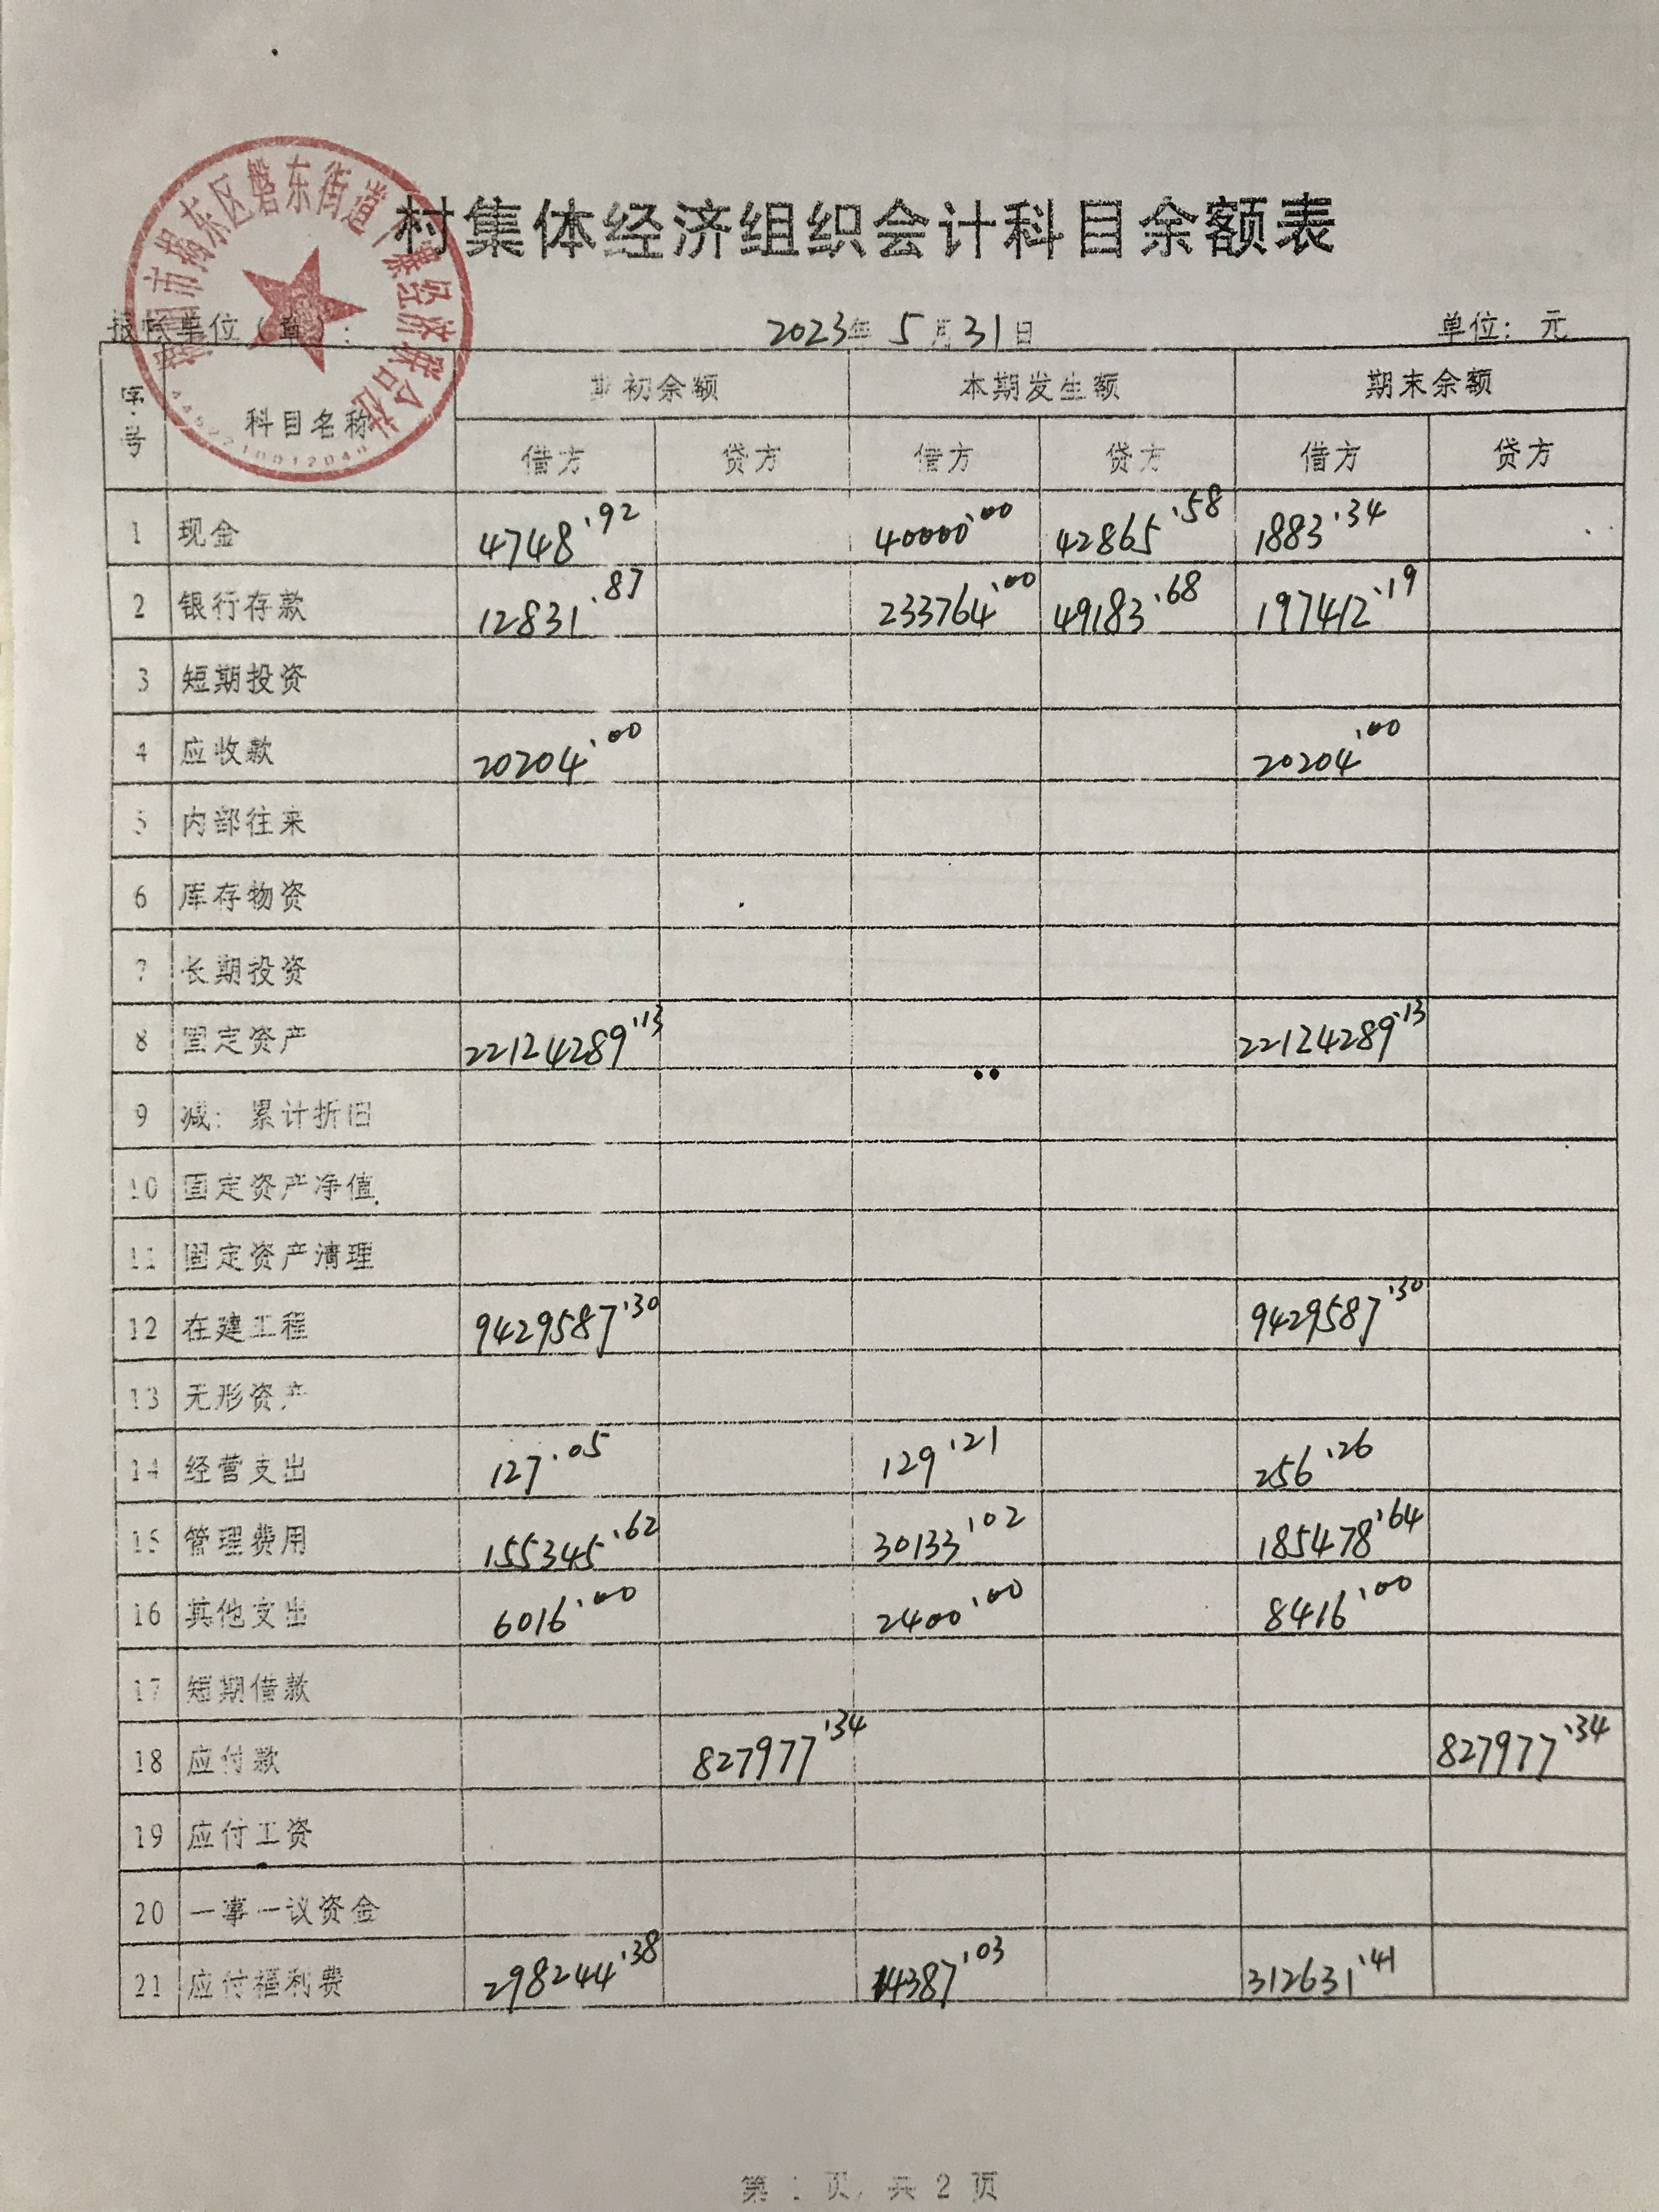 村集体经济组织会计科目余额表
揭阳市揭东区磐东街道 寨经济联合社
报帐单位(章): 2023年 5月31日 单位: 元
序号 科目名称 期初余额 本期发生额 期末余额
借方 贷方 借方 贷方 借方 贷方
1 现金 4748.92 40000.00 42865.58 1883.34
2 银行存款 12831.87 233764.00 49183.68 197412.19
3 短期投资
4 应收款 20204.00 20204.00
5 内部往来
6 库存物资
7 长期投资
8 固定资产 22124289.13 22124289.13
9 减: 累计折旧
10 固定资产净值
11 固定资产清理
12 在建工程 9429587.30 9429587.30
13 无形资产
14 经营支出 127.05 129.21 256.26
15 管理费用 155345.62 30133.02 185478.64
16 其他支出 6016.00 2400.00 8416.00
17 短期借款
18 应付款 827977.34 827977.34
19 应付工资
20 一事一议资金
21 应付福利费 298244.38 14387.03 312631.41
第 1 页, 共 2 页